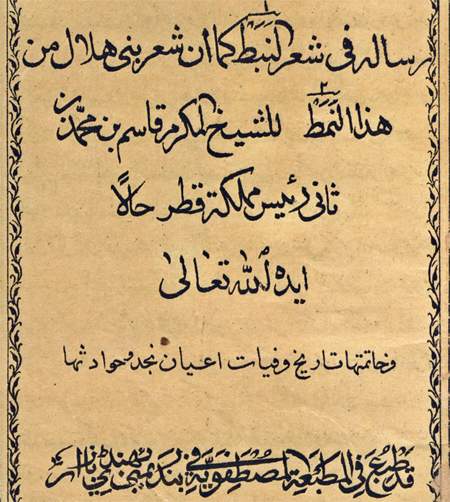 رسالة في شعر النبط كما أن شعر بني هلال من
هذا النمط للشيخ المكرم قاسم بن محمد بن
ثاني رئيس مملكة قطر حالاً
ايده الله تعالى
وخاتمتها تاريخ وفيات اعيان نجد وحوادثها
قد طبع في المطبعة المصطفوية في بندر بمبي